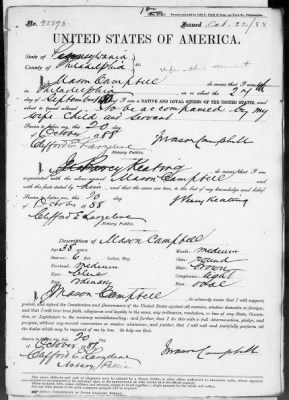 No. 92898
Issued Oct. 22/88
UNITED STATES OF AMERICA.
State of Pennsylvania
County of Philadelphia
I, Mason Campbell do swear that I was born
in Philadelphia on or about the 27th
day of September; that I am a NATIVE AND LOYAL CITIZEN OF THE UNITED STATES, and
about to travel abroad. To be accompanied by my
wife child and servant
Sworn to before me, this 20 day
of October 1888
Mason Campbell
Clifford E Langdine
Notary Public.
I, J Percy Keating, do swear, that I am
acquainted with the above-named Mason Campbell and
with the facts stated by him and that the same are true, to the best of my knowledge and belief.
Sworn to before me, this 20 day
of October 1888
J Percy Keating
Notary Public.
Description of Mason Campbell
Age, 38 years.
Mouth, medium
Stature, 6 feet
Chin, round
Forehead, medium
Hair, brown
Eyes, blue
Complexion, light
Nose, ordinary
Face, oval
I, Mason Campbell, do solemnly swear that I will support,
protect, and defend the Constitution and Government of the United States against all enemies, whether domestic or foreign;
and that I will bear true faith, allegiance, and loyalty to the same, any ordinance, resolution, or law of any State, Convention, or Legislature to the contrary notwithstanding; and further, that I do this with a full determination, pledge, and
purpose, without any mental reservation or evasion whatsoever; and further, that I will well and faithfully perform all
the duties which may be required of me by law. So help me God.
Sworn to before me, this 20 day
of October 1888
Mason Campbell
Notary Public